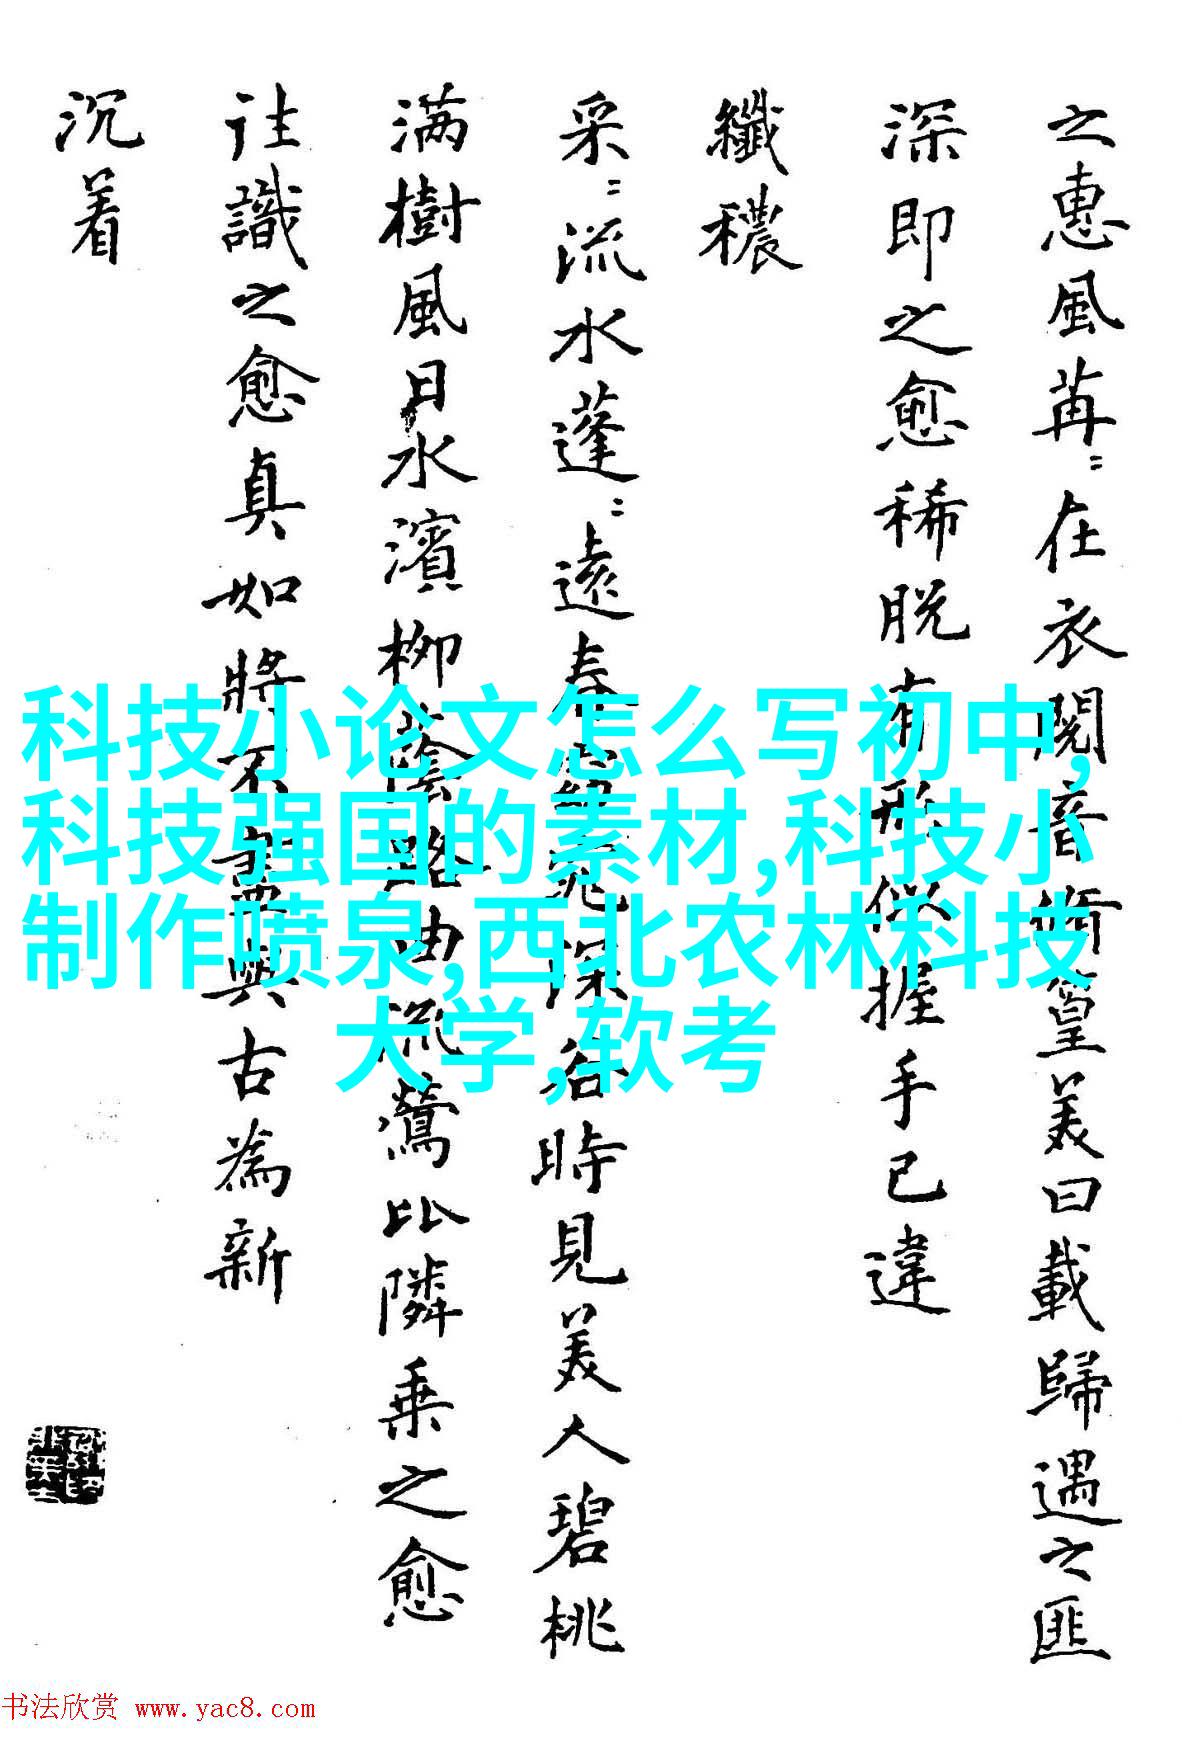 之惠風苒〻在衣閱音脩篁美曰載歸遇之匪
深即之愈稀脫有形似握手已違
纖穠
采〻流水蓬〻遠春窈窕深谷時見美人碧桃
满樹風日水濱柳蔭路曲流鶯比隣乗之愈
往識之愈真如將不盡與古為新
沉着
科技小论文怎么写初中,
科技强国的素材,科技小
制作喷泉,西北农林科技
大学,软考
书法欣赏 www.yac8.com